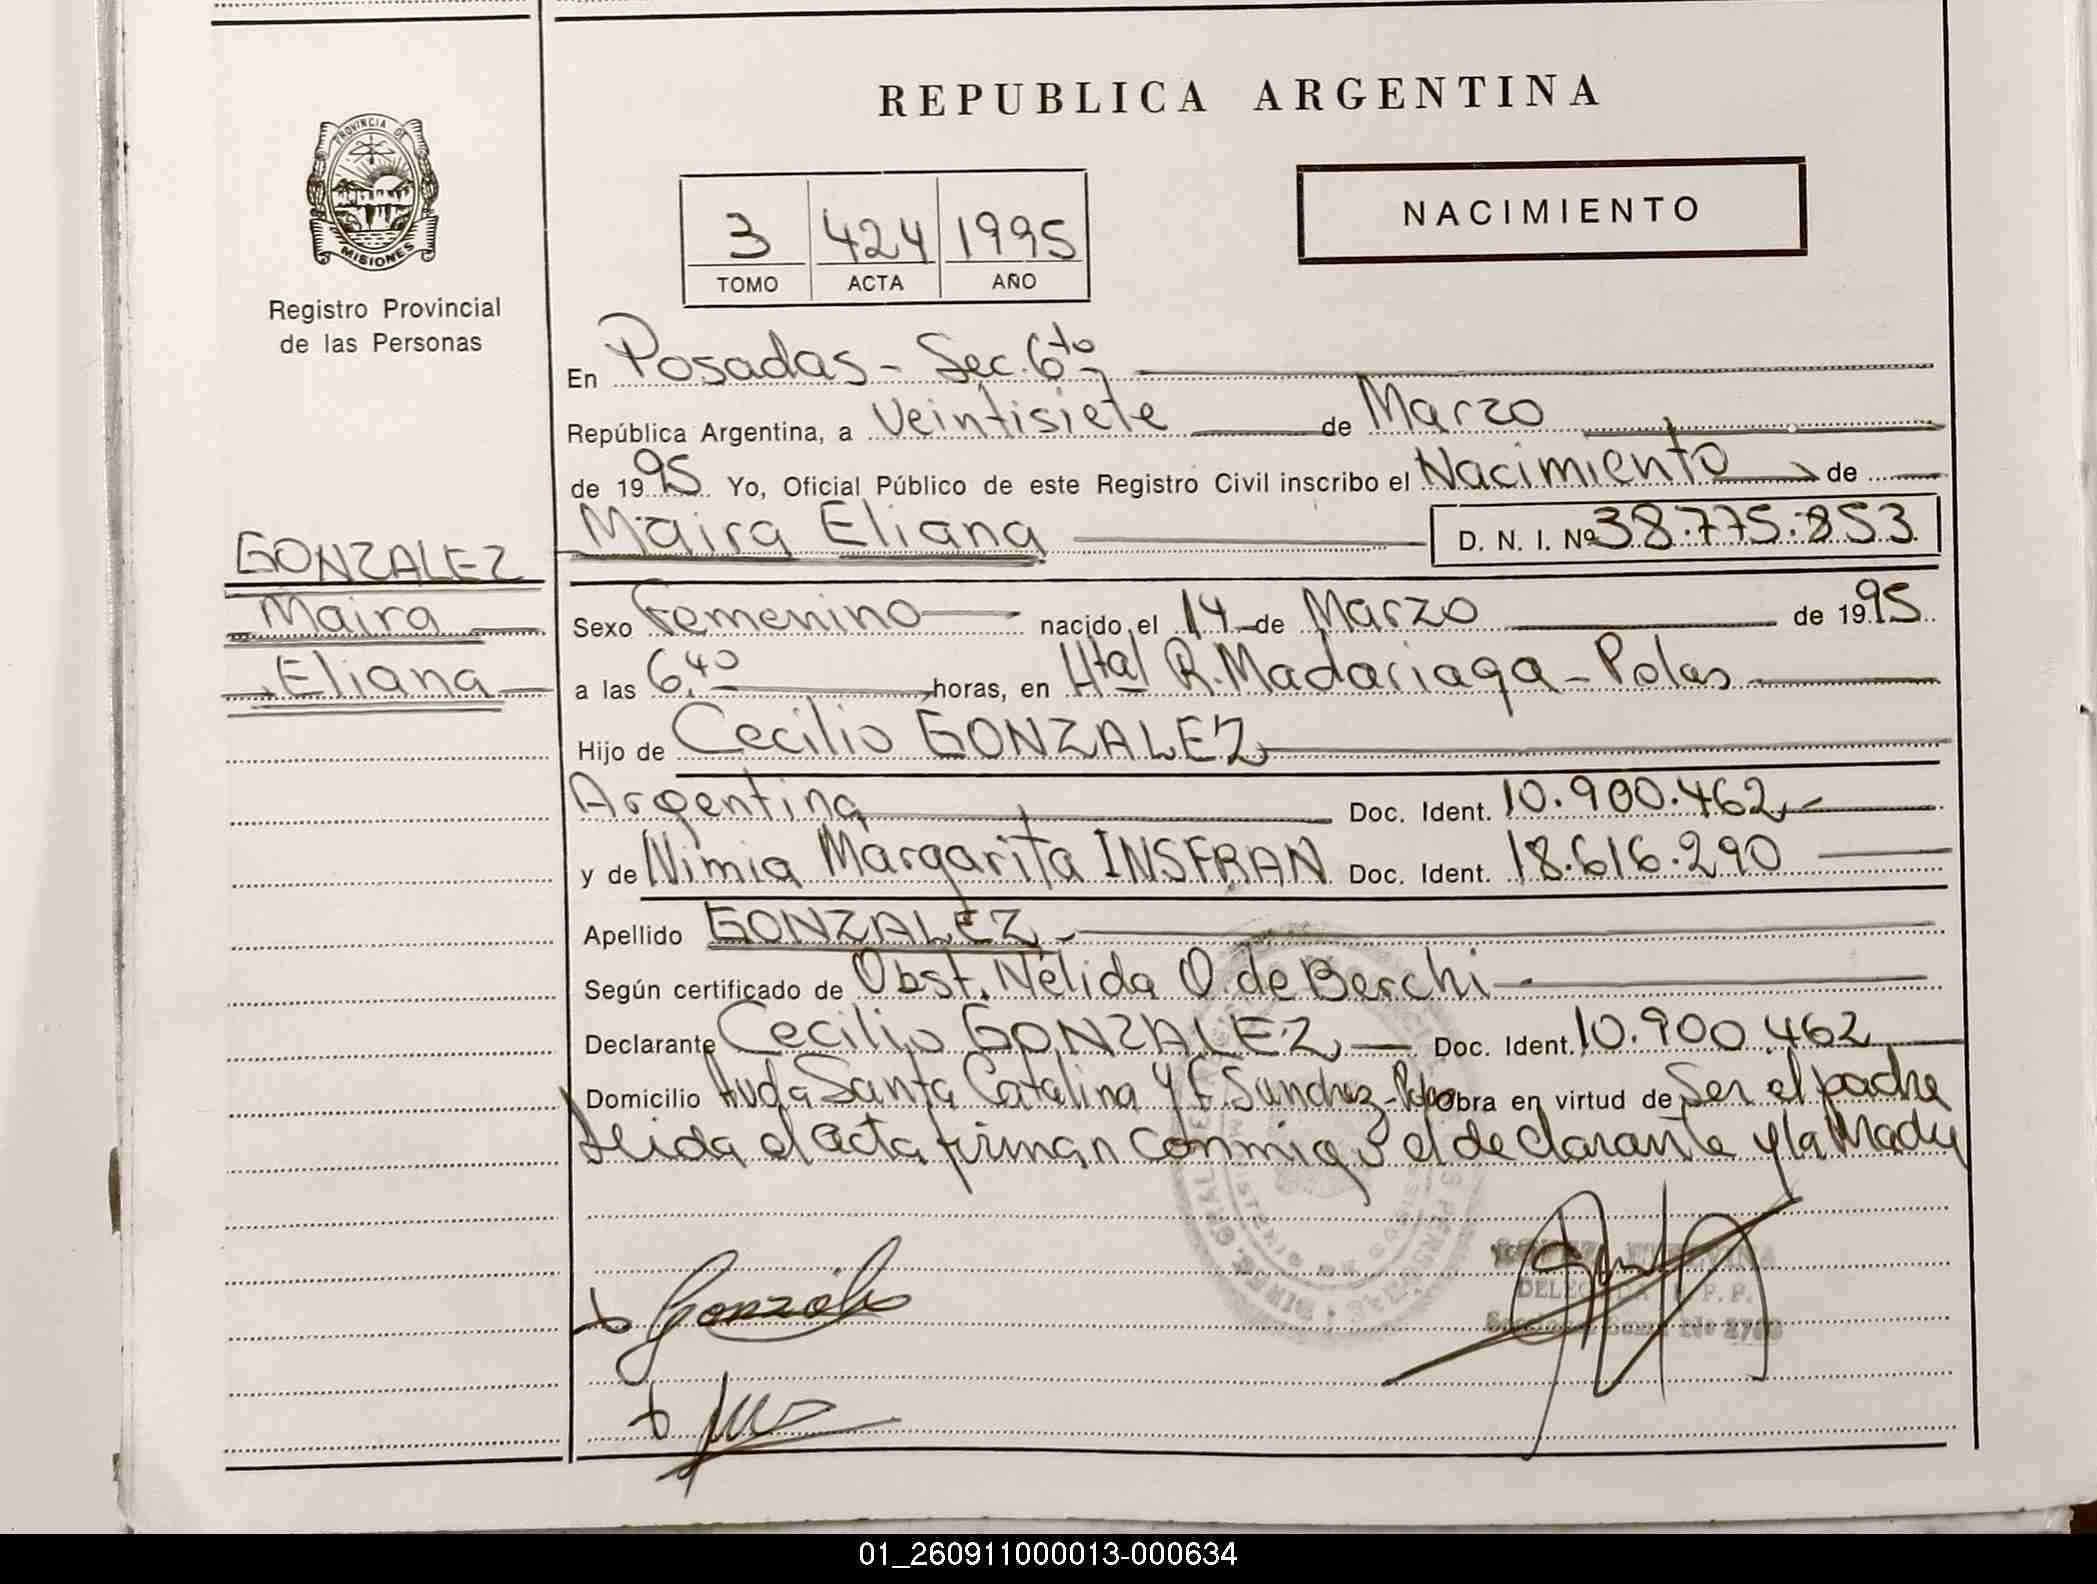 REPUBLICA ARGENTINA
PROVINCIA DE
MISIONES
Registro Provincial
de las Personas
NACIMIENTO
3 424 1995
TOMO ACTA AÑO
En Posadas - Sec. 6ta
República Argentina, a Veintisiete de Marzo
de 1995 Yo, Oficial Público de este Registro Civil inscribo el Nacimiento de
Maira Eliana D. N. I. Nº 38.775.853
GONZALEZ
Maira
Eliana
Sexo Femenino nacido el 14 de Marzo de 1995
a las 6,40 horas, en Htal R. Madariaga - Pdas
Hijo de Cecilio GONZALEZ
Argentina Doc. Ident. 10.900.462
y de Nimia Margarita INSFRAN Doc. Ident. 18.616.290
Apellido GONZALEZ
Según certificado de Obst. Nélida O. de Berchi
Declarante Cecilio GONZALEZ Doc. Ident. 10.900.462
Domicilio Avda Santa Catalina y F. Sanchez - Obra en virtud de Ser el padre
Leida el acta firman conmigo el declarante y la Madre
Gonzalez
DELEGADA R.P.P.
01_260911000013-000634